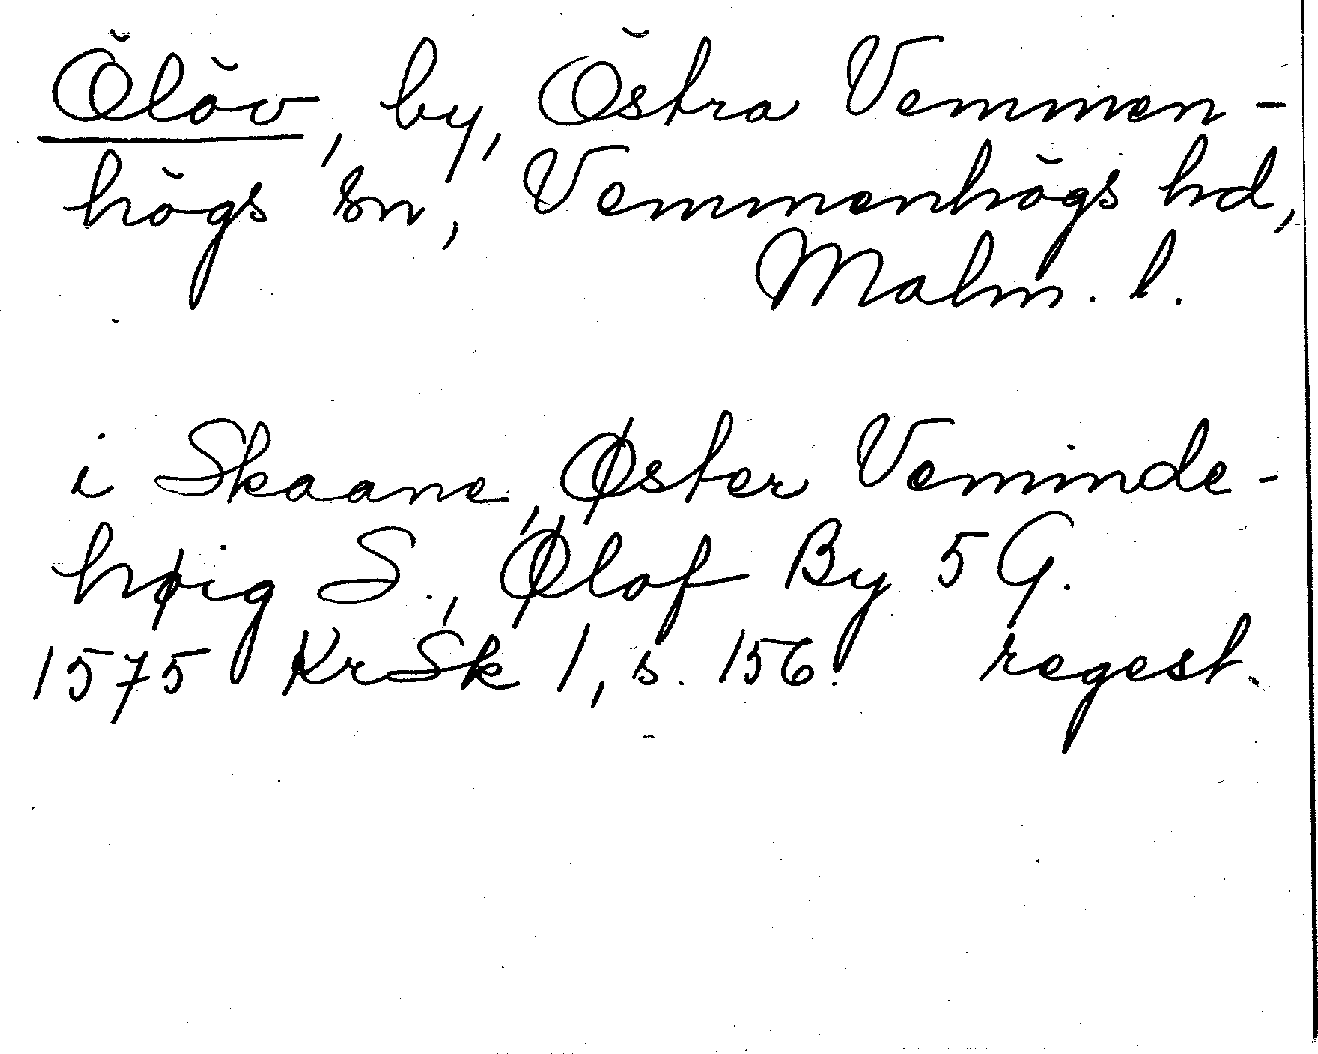 Ölöv, by, Östra Vemmen-
högs sn, Vemmenhögs hd,
Malm. l.
i Skaane, Øster Veminde-
høig S., Øløf By 5 G.
1575 KrSk 1, s. 156. regest.